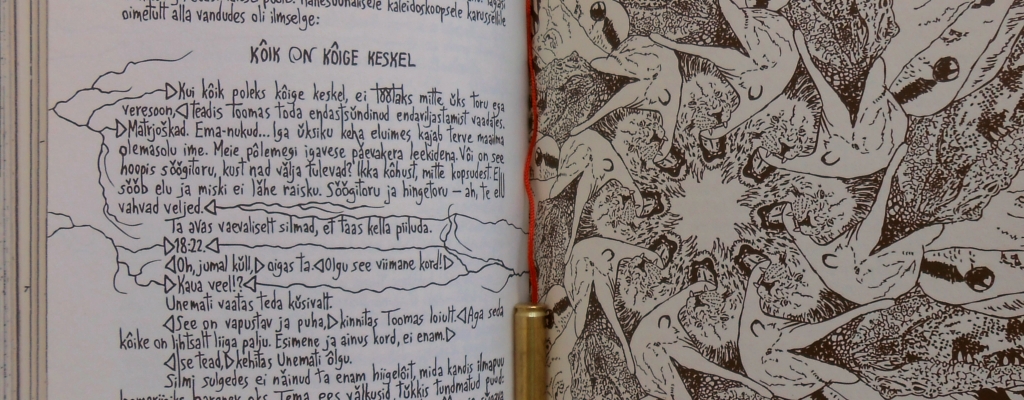 oimetult alla vandudes oli ilmselge:
KÕIK ON KÕIGE KESKEL
▷Kui kõik poleks kõige keskel, ei töötaks mitte üks toru ega
veresoon,◁ teadis Toomas toda endastsündinud endaviljaslamist vaadates.
▷Matrjoškad. Ema-nukud... Iga üksiku keha eluimes kajab terve maailma
olemasolu ime. Meie põlemegi igavese päevakera leekidena. Või on see
hoopis söögitoru, kust nad välja tulevad? Ikka kõhust, mitte kopsudest. Elu
sööb elu ja miski ei lähe raisku. Söögitoru ja hingetoru – ah, te elu
vahvad veljed.◁
Ta avas vaevaliselt silmad, et taas kella piiluda.
▷18:22.◁
◁Oh, jumal küll,▷ oigas ta. ◁Olgu see viimane kord!▷
▷Kaua veel!?◁
Unemati vaatas teda küsivalt.
◁See on vapustav ja püha,▷ kinnitas Toomas loiult. ◁Aga seda
kõike on lihtsalt liiga palju. Esimene ja ainus kord, ei enam.▷
◁Ise tead,▷ kehitas Unemati õlgu.
Silmi sulgedes ei näinud ta enam hiigelõit, mida kandis ilmapuu